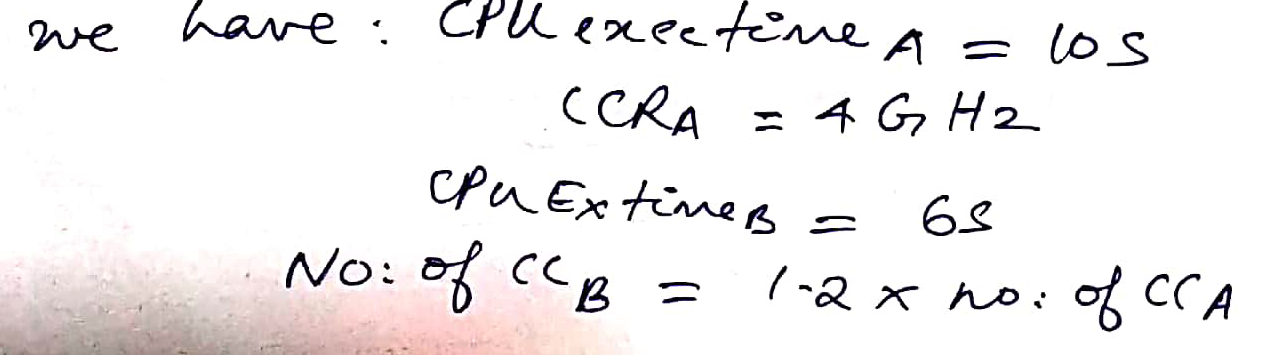 we have : CPU exectime A = 10s
CCRA = 4 GHz
CPU Ex timeB = 6s
NO: of CCB = 1.2 x no: of CCA